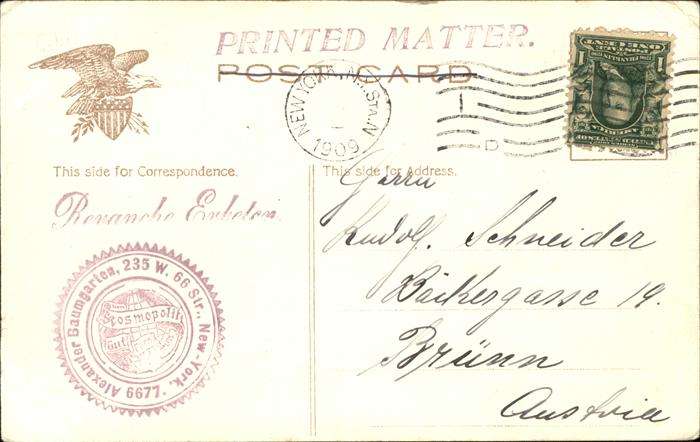 PRINTED MATTER.
POST CARD
NEW YORK, N.Y. STA. N
1909
1
D
This side for Correspondence.
This side for Address.
Revanche Erbeten.
Alexander Baumgarten, 235 W. 66 Str., New-York.
6677.
Cosmopolit
Herrn
Rudolf. Schneider
Bäckergasse 19.
Brünn
Austria